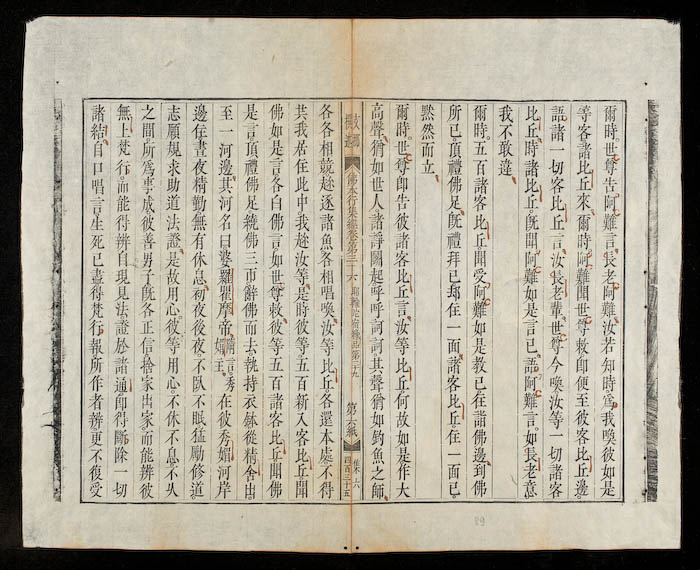 爾時世尊告阿難言長老阿難汝若知時為我喚彼如是
等客諸比丘來爾時阿難聞世尊敕即便至彼客比丘邊
語諸一切客比丘言汝長老輩世尊今喚汝等一切諸客
比丘時諸比丘既聞阿難如是言已語阿難言如長老意
我不敢違
爾時五百諸客比丘聞受阿難如是教已往詣佛邊到佛
所已頂禮佛足既禮拜已却住一面諸客比丘住一面已
默然而立
爾時世尊即告彼諸客比丘言汝等比丘何故如是作大
高聲猶如世人諸諍鬭起呼呼訶訶其聲猶如釣魚之師
佛本行集經卷第三十六 第六紙
各各相競趂逐諸魚各相唱喚汝等比丘各還本處不得
共我居住此中我趂汝等是時彼等五百新入客比丘聞
佛如是言各白佛言如世尊敕彼等五百諸客比丘聞佛
是言頂禮佛足繞佛三帀辭佛而去執持衣鉢從精舍出
至一河邊其河名曰婆羅瞿摩帝隋言秀媚主在彼秀媚河岸
邊住晝夜精勤無有休息初夜後夜不臥不眠猛勵修道
志願規求助道法證是故用心彼等用心不休不息不久
之間所為事成彼善男子既各正信捨家出家而能辨彼
無上梵行而能得辨自現見法證於諸通即得斷除一切
諸結自口唱言生死已盡得梵行報所作者辨更不復受
89